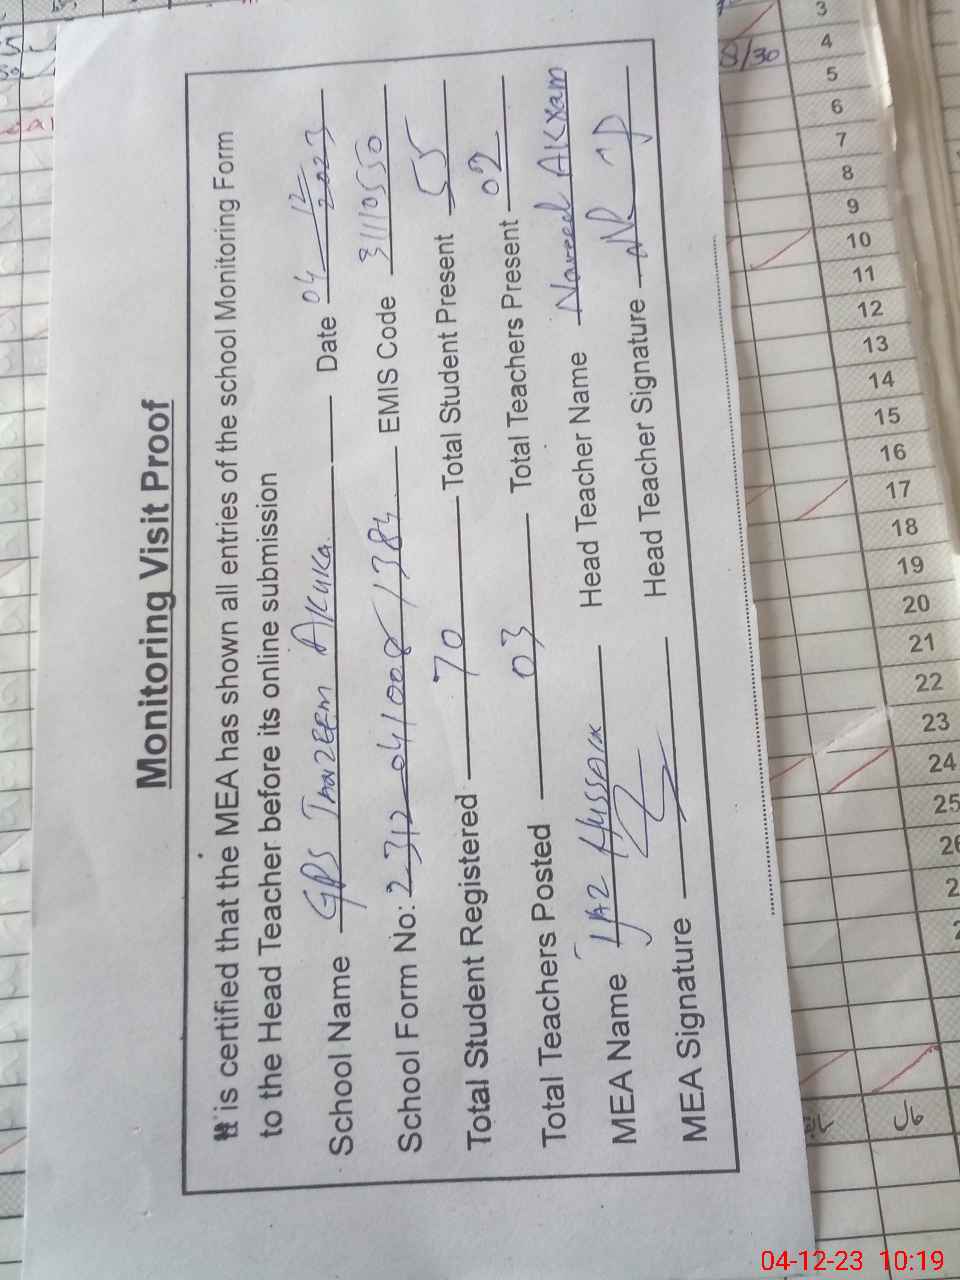 Monitoring Visit Proof
It is certified that the MEA has shown all entries of the school Monitoring Form
to the Head Teacher before its online submission
School Name GPS Tnazeem Akuka. Date 04 12/2023
School Form No: 2312 041008 1384 EMIS Code 31110550
Total Student Registered 70 Total Student Present 55
Total Teachers Posted 03 Total Teachers Present 02
MEA Name Ijaz Hussain Head Teacher Name Naveed AKram
MEA Signature Head Teacher Signature
8/30
3
4
5
6
7
8
9
10
11
12
13
14
15
16
17
18
19
20
21
22
23
24
25
26
حال
04-12-23 10:19